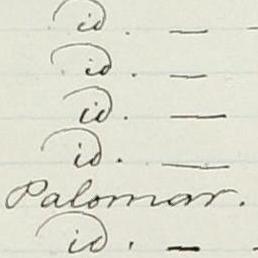 id. —
id. —
id. —
id. —
Palomar.
id. —